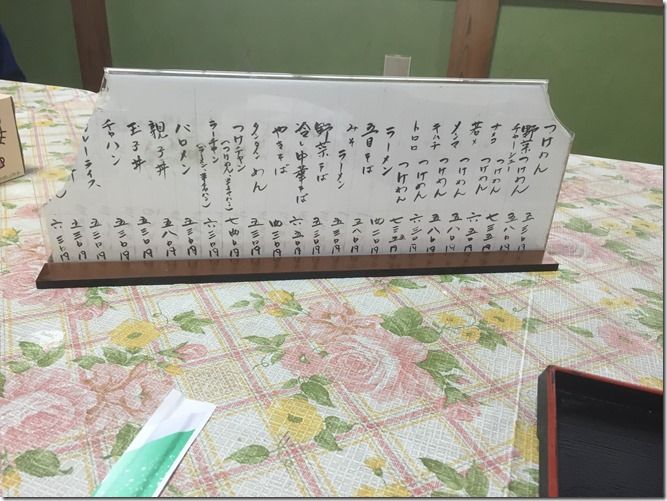 つけめん 五三〇円
野菜つけめん 五八〇円
チャーシューつけめん
つけめん
若メつけめん
メンマつけめん 五八〇円
キムチつけめん 五八〇円
トロロつけめん 六三〇円
つけめん 七三五円
ラーメン 四二〇円
五目そば 五八〇円
みそラーメン 五三〇円
野菜そば 五三〇円
冷し中華そば 六五〇円
やきそば 四三〇円
タンタンめん 五三〇円
つけチャン(つけめん、半チャーハン) 七四〇円
ラーチャン(ラーメン、半チャーハン) 六三〇円
バロメン 五八〇円
親子丼 五三〇円
玉子丼 五三〇円
チャハン 五三〇円
ライス 六三〇円